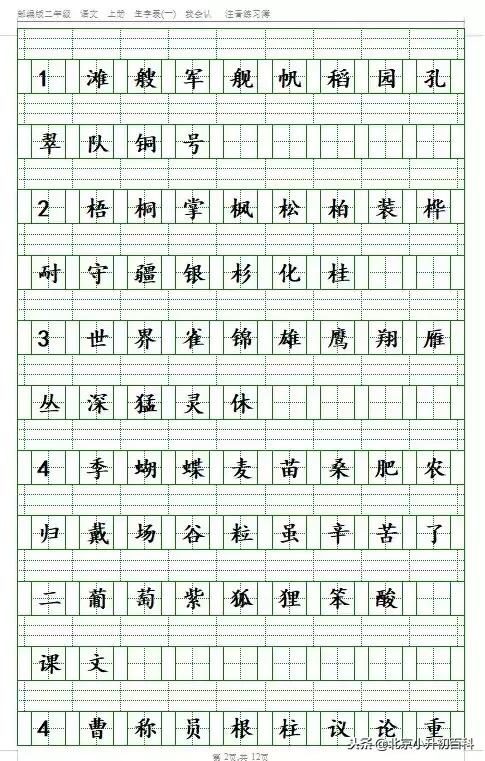 部编版二年级 语文 上册 生字表(一) 我会认 注音练习簿
1 滩 艘 军 舰 帆 稻 园 孔
翠 队 铜 号
2 梧 桐 掌 枫 松 柏 装 桦
耐 守 疆 银 杉 化 桂
3 世 界 雀 锦 雄 鹰 翔 雁
丛 深 猛 灵 休
4 季 蝴 蝶 麦 苗 桑 肥 农
归 戴 场 谷 粒 虽 辛 苦 了
二 葡 萄 紫 狐 狸 笨 酸
课 文
4 曹 称 员 根 柱 议 论 重
头条 @北京小升初百科
第 2页,共 12页